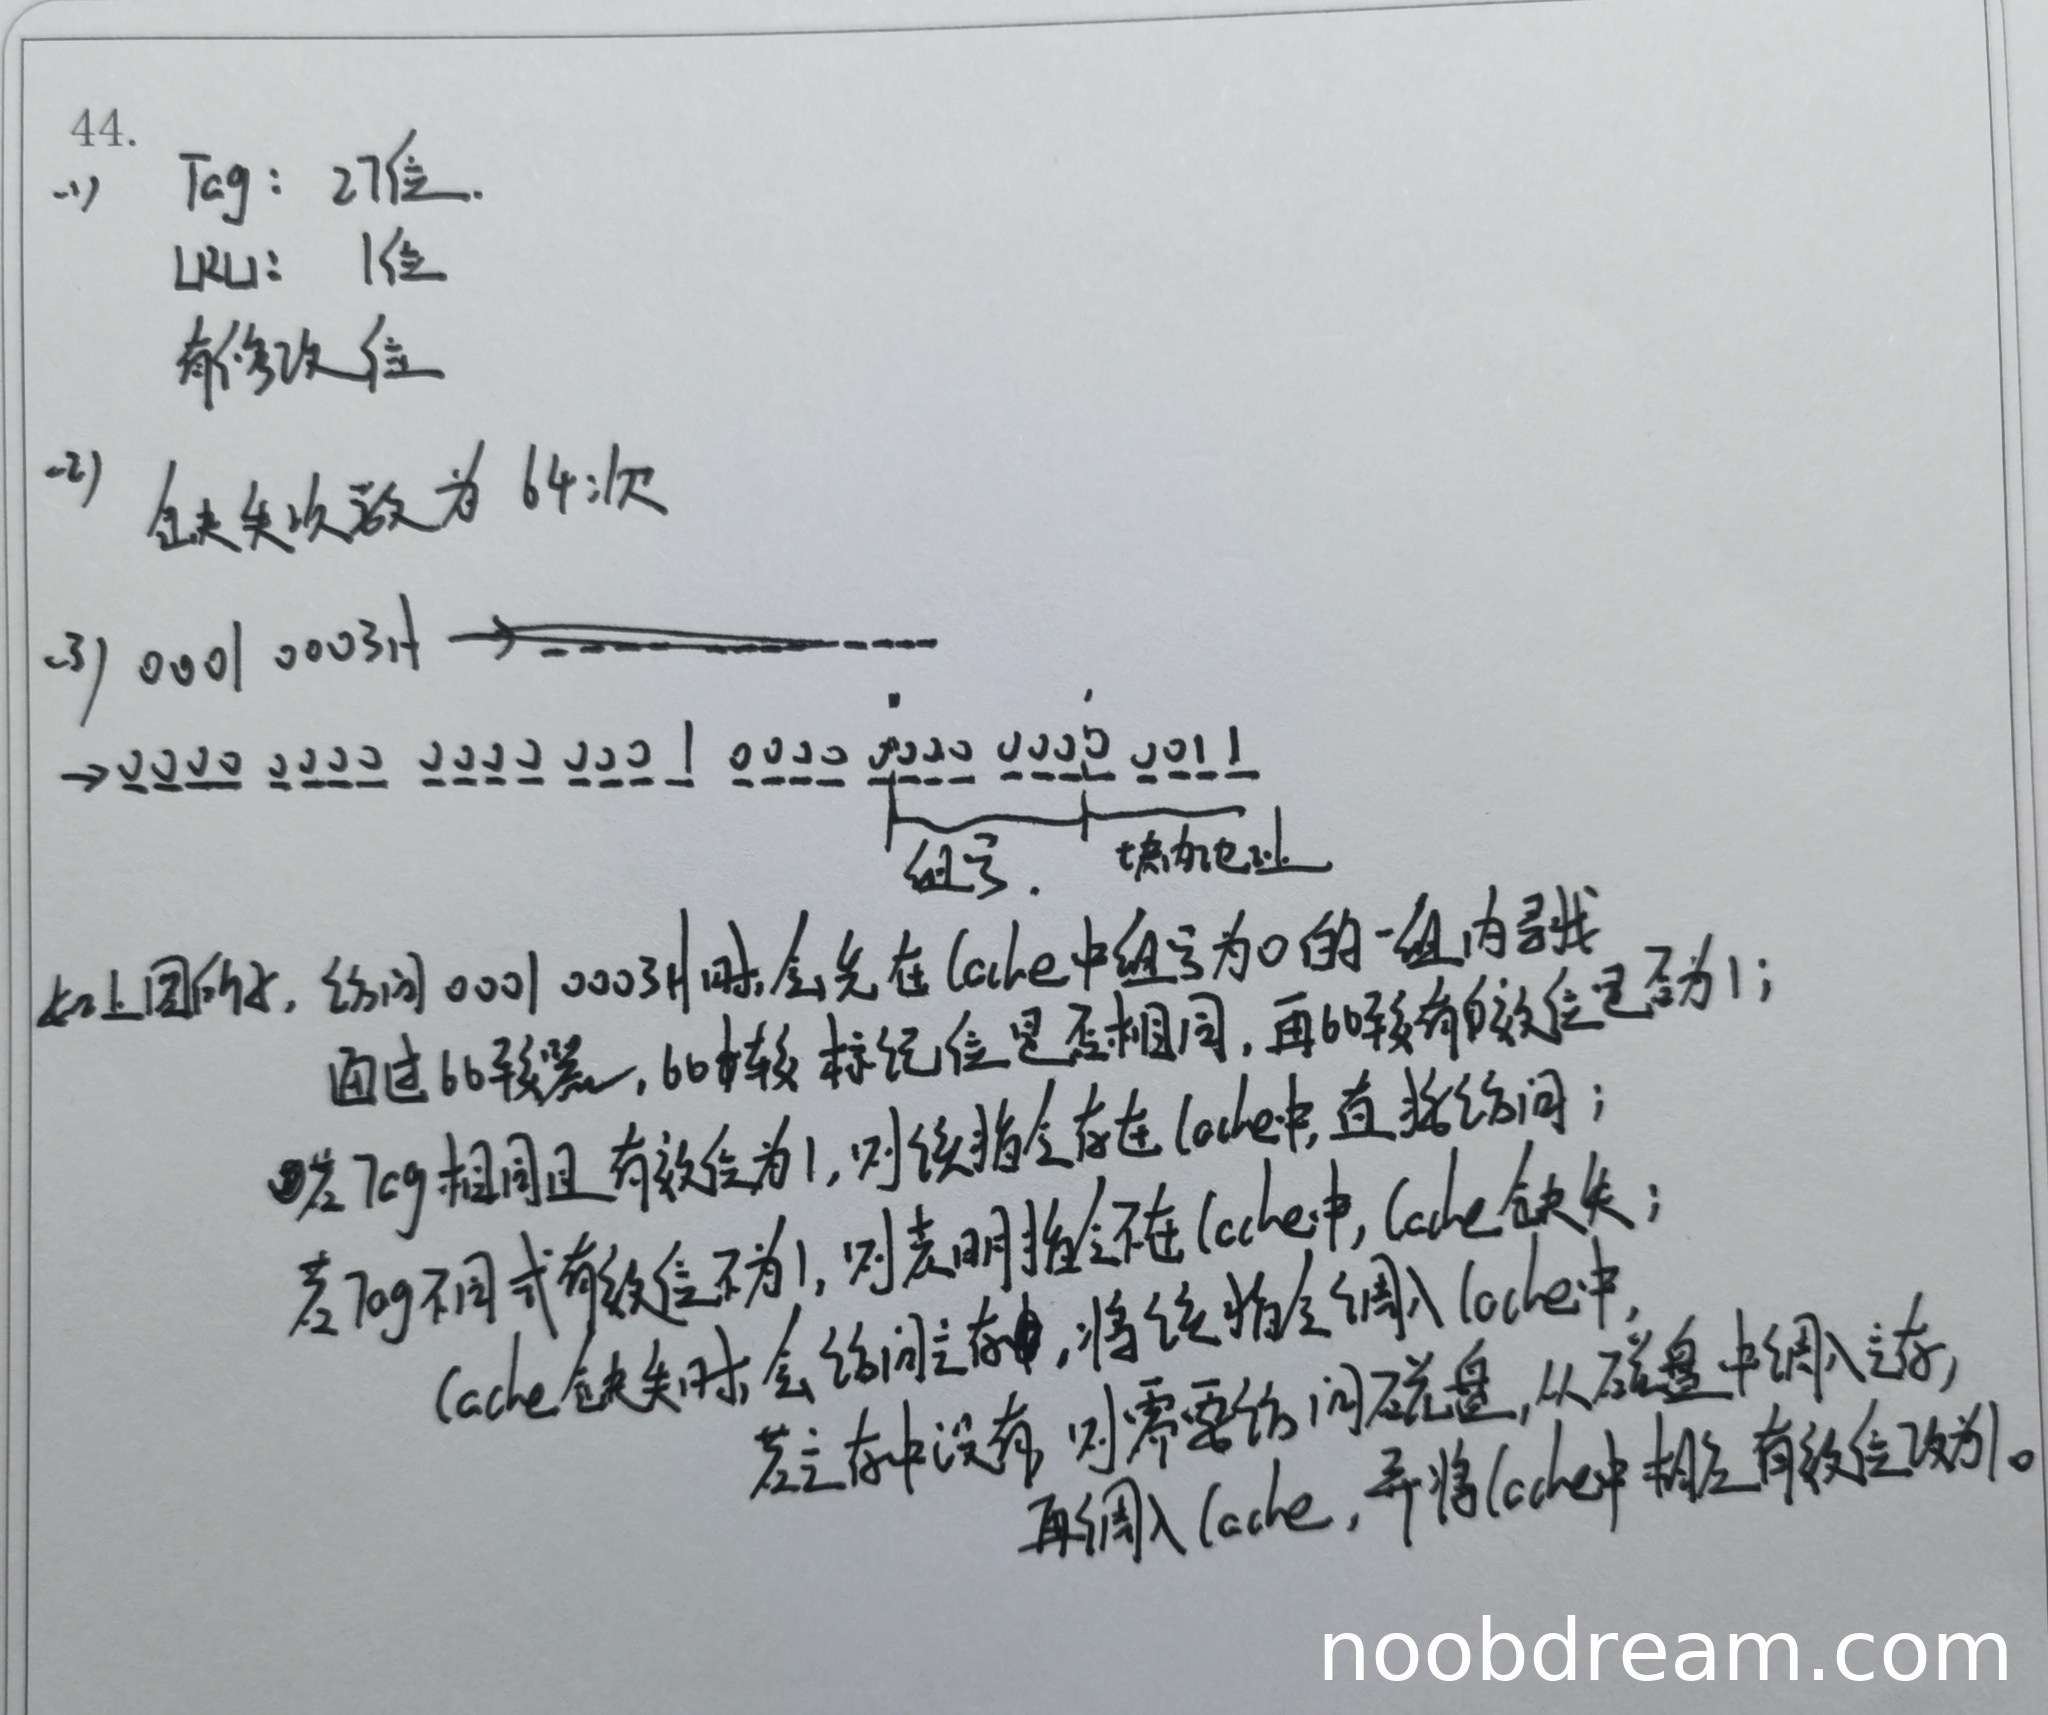 44.
(1) Tag: 27位.
LRU: 1位
有修改位
(2) 缺失次数为 64次
(3) 0001 0003H →
→ 0000 0000 0000 0001 0000 0000 0000 0011
组号. 块内地址
如上图所示, 访问 0001 0003H时, 会先在Cache中组号为0的一组内寻找
通过比较器, 比较标记位是否相同, 再比较有效位是否为1;
若Tag相同且有效位为1, 则该指令存在Cache中, 直接访问;
若Tag不同或有效位不为1, 则表明指令不在Cache中, Cache缺失;
Cache缺失时, 会访问主存, 将该指令调入Cache中,
若主存中没有, 则需要访问磁盘, 从磁盘中调入主存,
再调入Cache, 并将Cache中相应有效位改为1。
noobdream.com